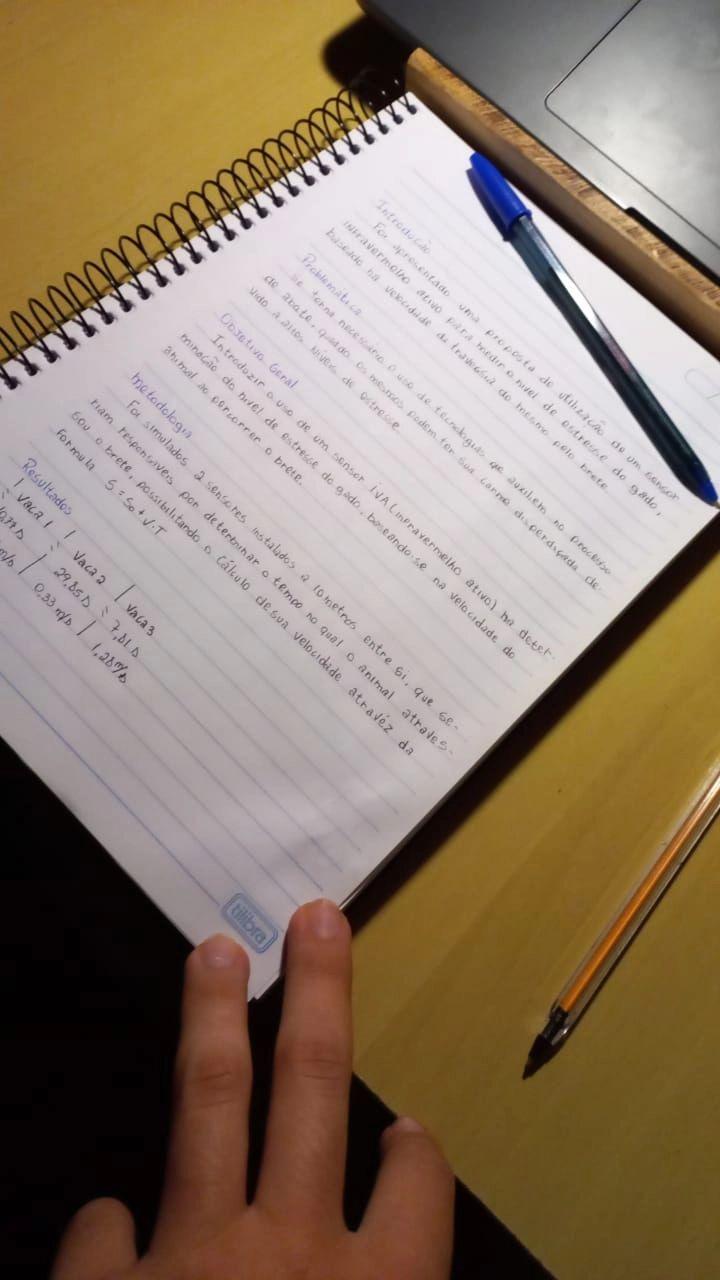 Introdução
Foi apresentado uma proposta de utilização de um sensor
infravermelho ativo para medir o nivel de estresse do gado,
baseado na velocidade da travessia do mesmo pelo brete
Problematica
se torna necessário o uso de tecnologias que auxilem no processo
de abate, quado os mesmos podem ter sua carne disperdiçada de-
vido a altos níveis de estresse
Objetivo Geral
Introduzir o uso de um sensor IVA (infravermelho ativo) na deter-
minação do nivel de estresse do gado, baseando-se na velocidade do
animal ao percorrer o brete.
Metodologia
Foi simulados 2 sensores instalados a 10 metros entre si, que se-
riam responsáveis por determinar o tempo no qual o animal atraves-
sou o brete, possibilitando o cálculo de sua velocidade atravéz da
formula S = So + V.T
Resultados
| Vaca 1 | Vaca 2 | Vaca 3
29,85s 7,81s
m/s | 0,33 m/s | 1,28 m/s
tilibra